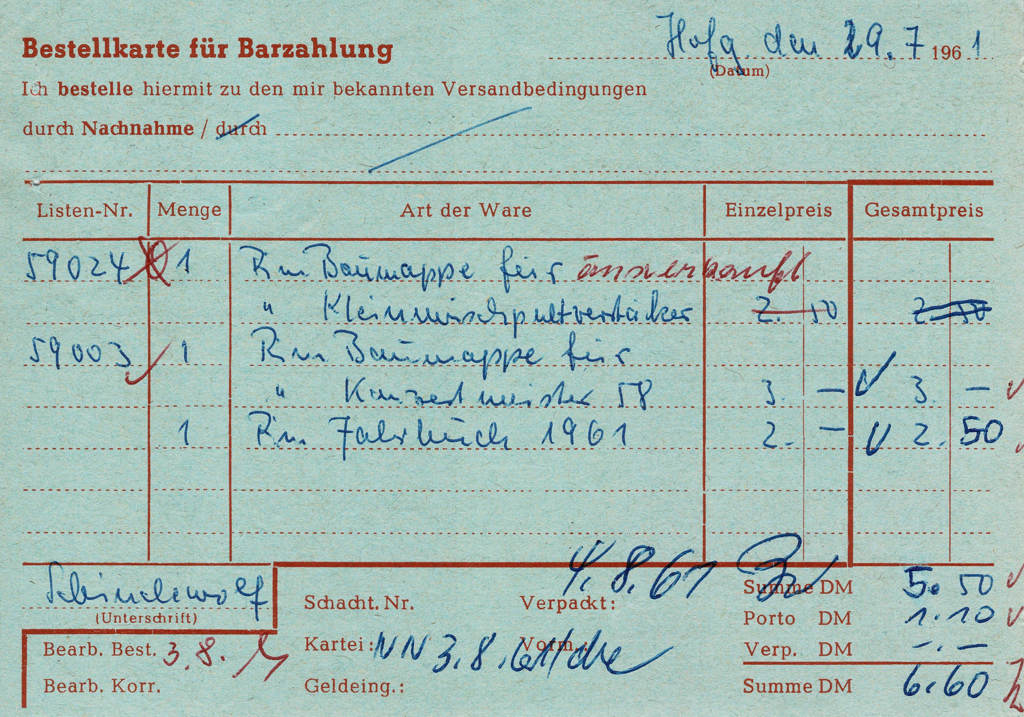 Bestellkarte für Barzahlung
Hofg. den 29.7 1961
(Datum)
Ich bestelle hiermit zu den mir bekannten Versandbedingungen
durch Nachnahme / durch
Listen-Nr. Menge Art der Ware Einzelpreis Gesamtpreis
59024 1 Rim Baumappe für
" Kleinmischpultverstäker 2. 50 2. 50
59003 1 Rim Baumappe für
" Konzertmeister 58 3. — 3. —
1 Rim Jahrbuch 1961 2. — 2. 50
4.8.61
Schindewolf
(Unterschrift)
Schacht. Nr. Verpackt: Summe DM 5. 50
Porto DM 1.10
Bearb. Best. 3.8. Kartei: NN 3.8.61 Vorm.: Verp. DM —.—
Bearb. Korr. Geldeing.: Summe DM 6.60